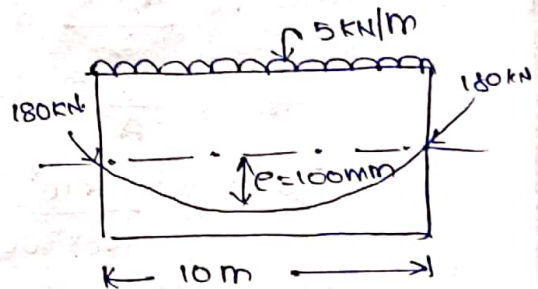 5 KN/m
180KN.
180KN
e=100mm
10 m